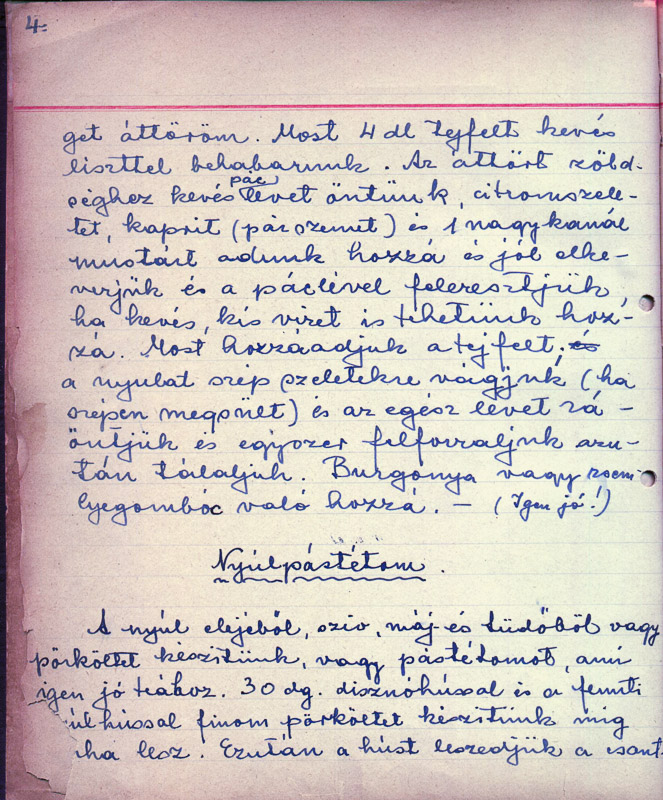 4.
get áttöröm. Most 4 dl tejfelt kevés
liszttel behabarunk. Az áttört zöld-
séghez kevés páclevet öntünk, citromszele-
tet, kaprit (pár szemet) és 1 nagykanál
mustárt adunk hozzá és jól elke-
verjük és a páclével feleresztjük,
ha kevés, kis vizet is tehetünk hoz-
zá. Most hozzáadjuk a tejfelt, és
a nyulat szép szeletekre vágjuk (ha
szépen megsült) és az egész levet rá-
öntjük és egyszer felforraljuk azu-
tán tálaljuk. Burgonya vagy zsem-
lyegombóc való hozzá. — (Igen jó!)
Nyúlpástétom.
A nyúl elejéből, szív, máj és tüdőből vagy
pörköltet készítünk, vagy pástétomot, ami
igen jó teához. 30 dg. disznóhússal és a fenti
úlhússal finom pörköltet készítünk míg
ha lesz. Ezután a húst leszedjük a csont